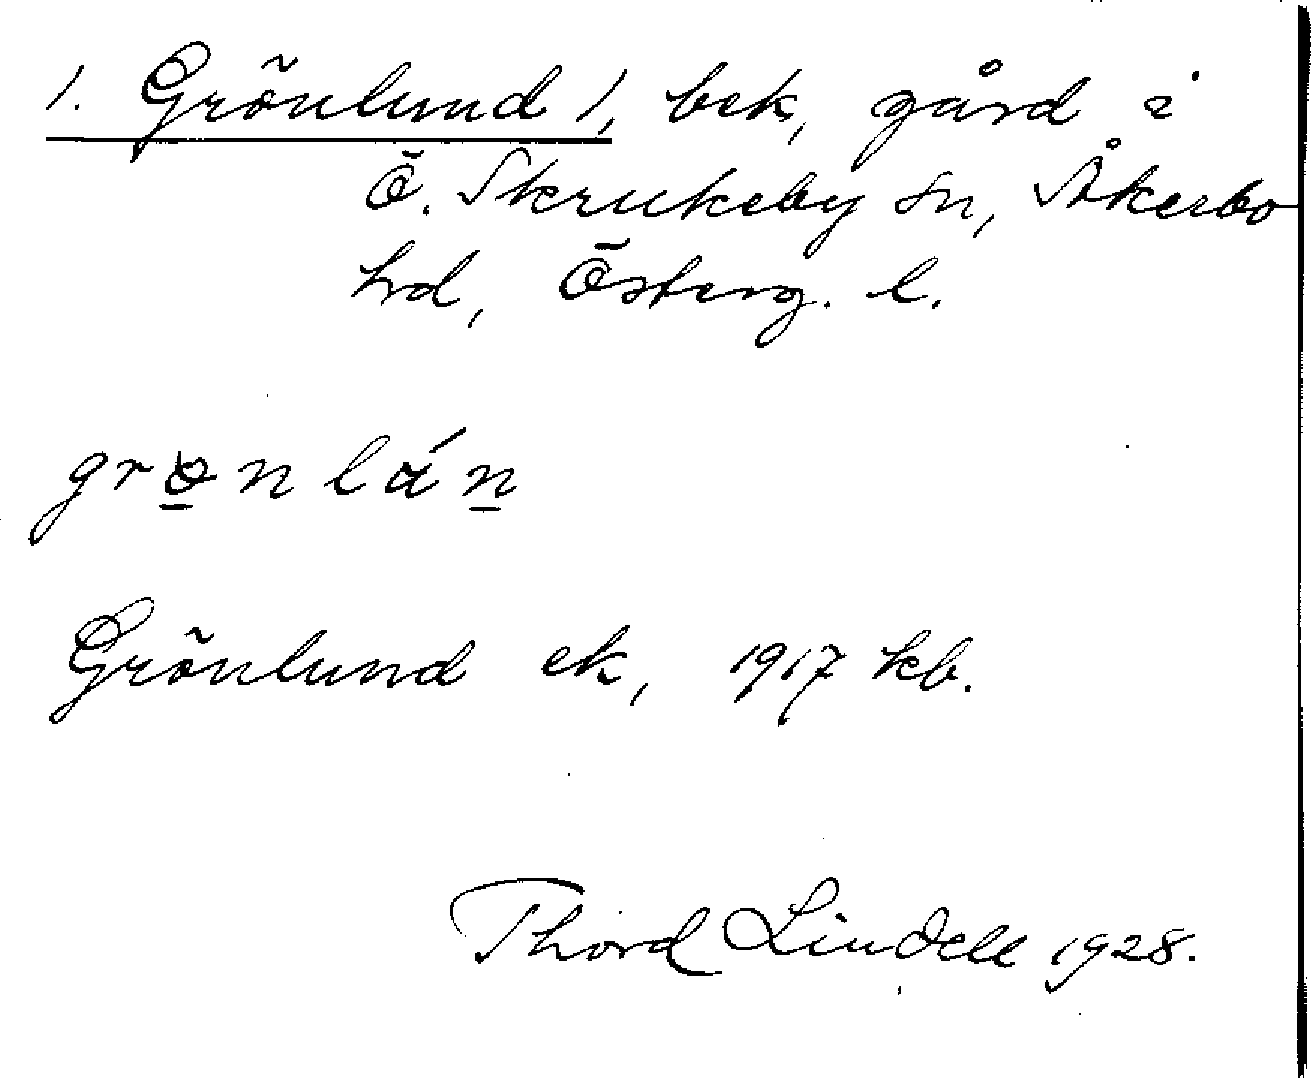 1. Grönlund 1, bek, gård i
Ö. Skrukeby sn, Åkerbo
hd, Österg. l.
Grönlund ek, 1917 kb.
Thord Lindell 1928.